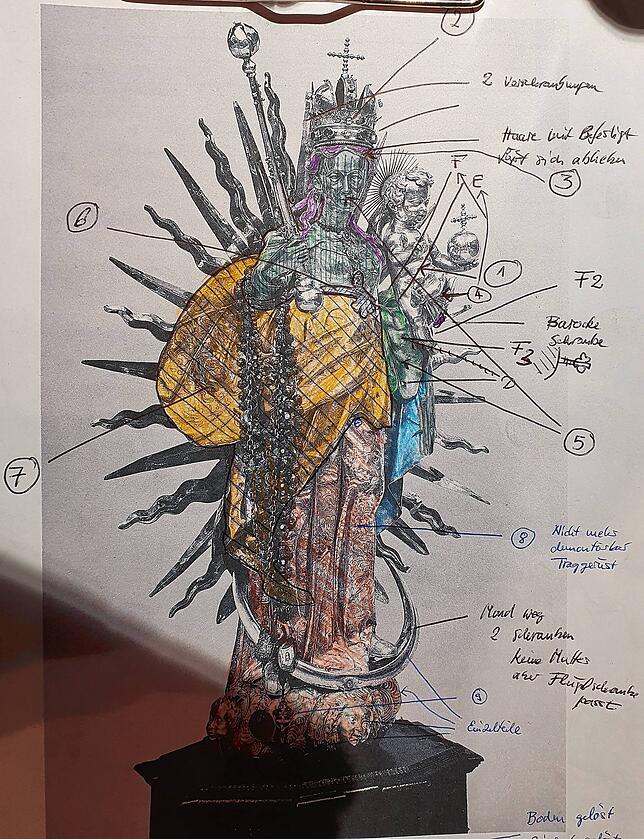 2
2 Verschraubungen
Haare mit Befestigt
lässt sich abheben
3
F
E
6
1
4
F2
Barocke
Schraube
F3
D
5
7
8
Nicht mehr
demontierbar
Traggerüst
Mond weg
2 Schrauben
keine Mutter
passt
9
Einzelteile
Boden gelöst